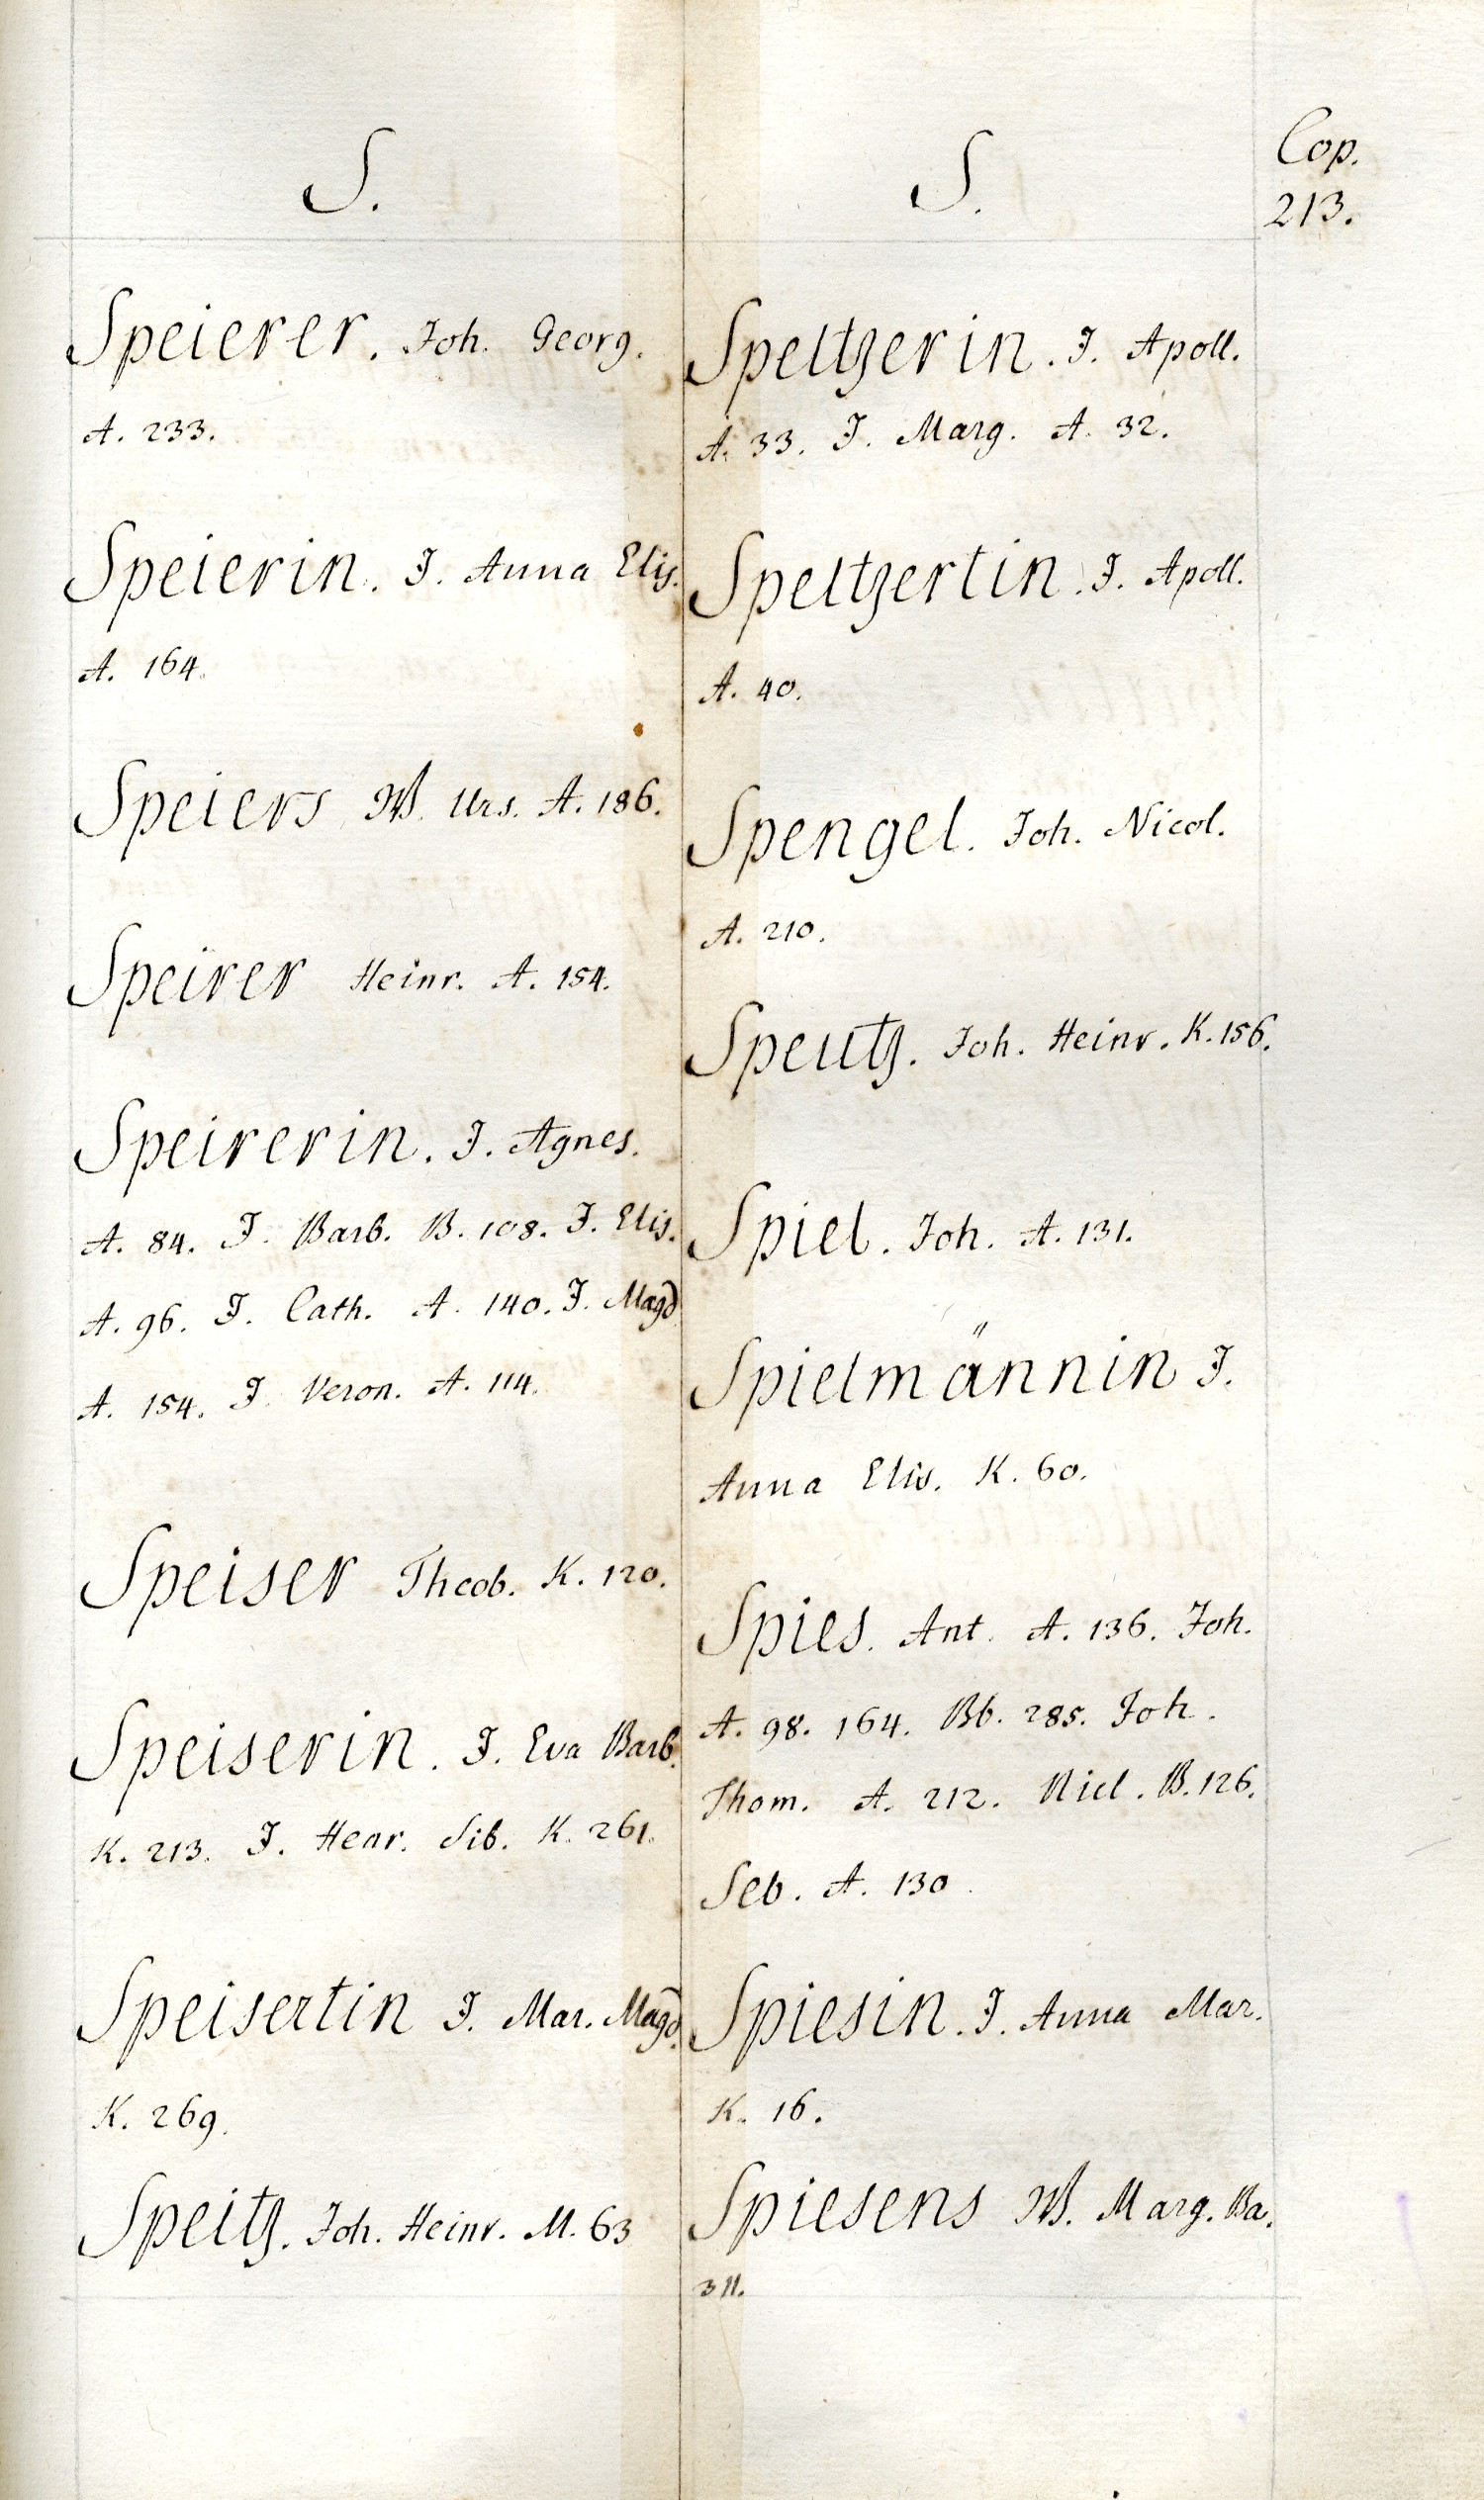 S.
Speierer. Joh. Georg.
A. 233.
Speierin. J. Anna Elis.
A. 164.
Speiers W. Urs. A. 186.
Speirer Heinr. A. 154.
Speirerin. J. Agnes.
A. 84. J. Barb. B. 108. J. Elis.
A. 96. J. Cath. A. 140. J. Magd
A. 154. J. Veron. A. 114.
Speiser Theob. K. 120.
Speiserin. J. Eva Barb.
K. 213. J. Henr. Sib. K. 261.
Speisertin J. Mar. Magd.
K. 269.
Speitz. Joh. Heinr. M. 63
S.
Cop.
213.
Speltzerin. J. Apoll.
A. 33. J. Marg. A. 32.
Speltzertin. J. Apoll.
A. 40.
Spengel. Joh. Nicol.
A. 210.
Speutz. Joh. Heinr. K. 156.
Spiel. Joh. A. 131.
Spielmännin J.
Anna Elis. K. 60.
Spies. Ant. A. 136. Joh.
A. 98. 164. Bb. 285. Joh.
Thom. A. 212. Nicl. B. 126.
Seb. A. 130.
Spiesin. J. Anna Mar.
K. 16.
Spiesens W. Marg. Ba.
311.